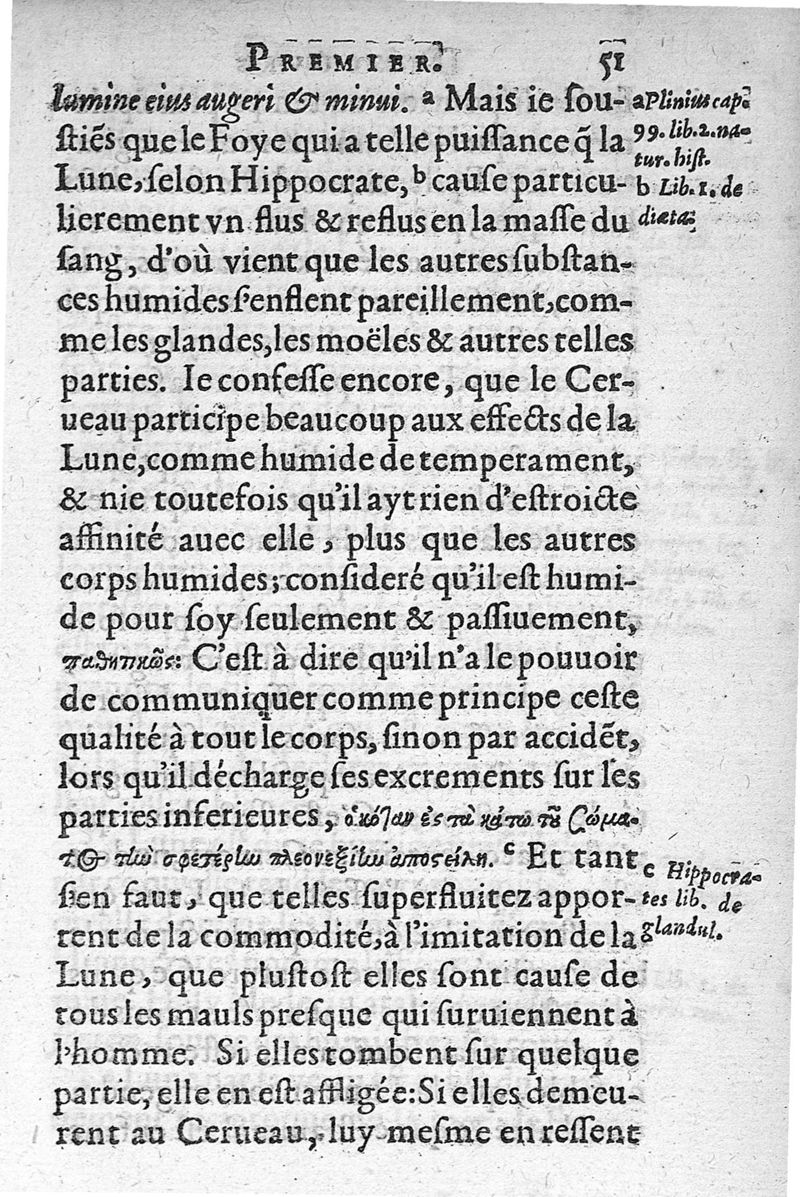 PREMIER. 51
lumine eius augeri & minui. a Mais ie ſou-
ſtiẽs que le Foye qui a telle puiſſance q̃ la
Lune, ſelon Hippocrate, b cauſe particu-
lierement vn flus & reflus en la maſſe du
ſang, d'où vient que les autres ſubſtan-
ces humides ſ'enflent pareillement, com-
me les glandes, les moëles & autres telles
parties. Ie confeſſe encore, que le Cer-
ueau participe beaucoup aux effects de la
Lune, comme humide de temperament,
& nie toutefois qu'il ayt rien d'eſtroicte
affinité auec elle, plus que les autres
corps humides; conſideré qu'il eſt humi-
de pour ſoy ſeulement & paſſiuement,
παθητικῶς: C'eſt à dire qu'il n'a le pouuoir
de communiquer comme principe ceſte
qualité à tout le corps, ſinon par accidẽt,
lors qu'il décharge ſes excrements ſur les
parties inferieures, ὁκόταν ἐς τὰ κάτω τοῦ σώμα-
τος τὴν σφετέρην πλεονεξίην ἀποςείλη. c Et tant
ſ'en faut, que telles ſuperfluitez appor-
tent de la commodité, à l'imitation de la
Lune, que pluſtoſt elles ſont cauſe de
tous les mauls preſque qui ſuruiennent à
l'homme. Si elles tombent ſur quelque
partie, elle en eſt affligée: Si elles demeu-
rent au Cerueau, luy meſme en reſſent
a Plinius cap.
99. lib. 2. na-
tur. hiſt.
b Lib. 1. de
diæta.
c Hippocra-
tes lib. de
glandul.